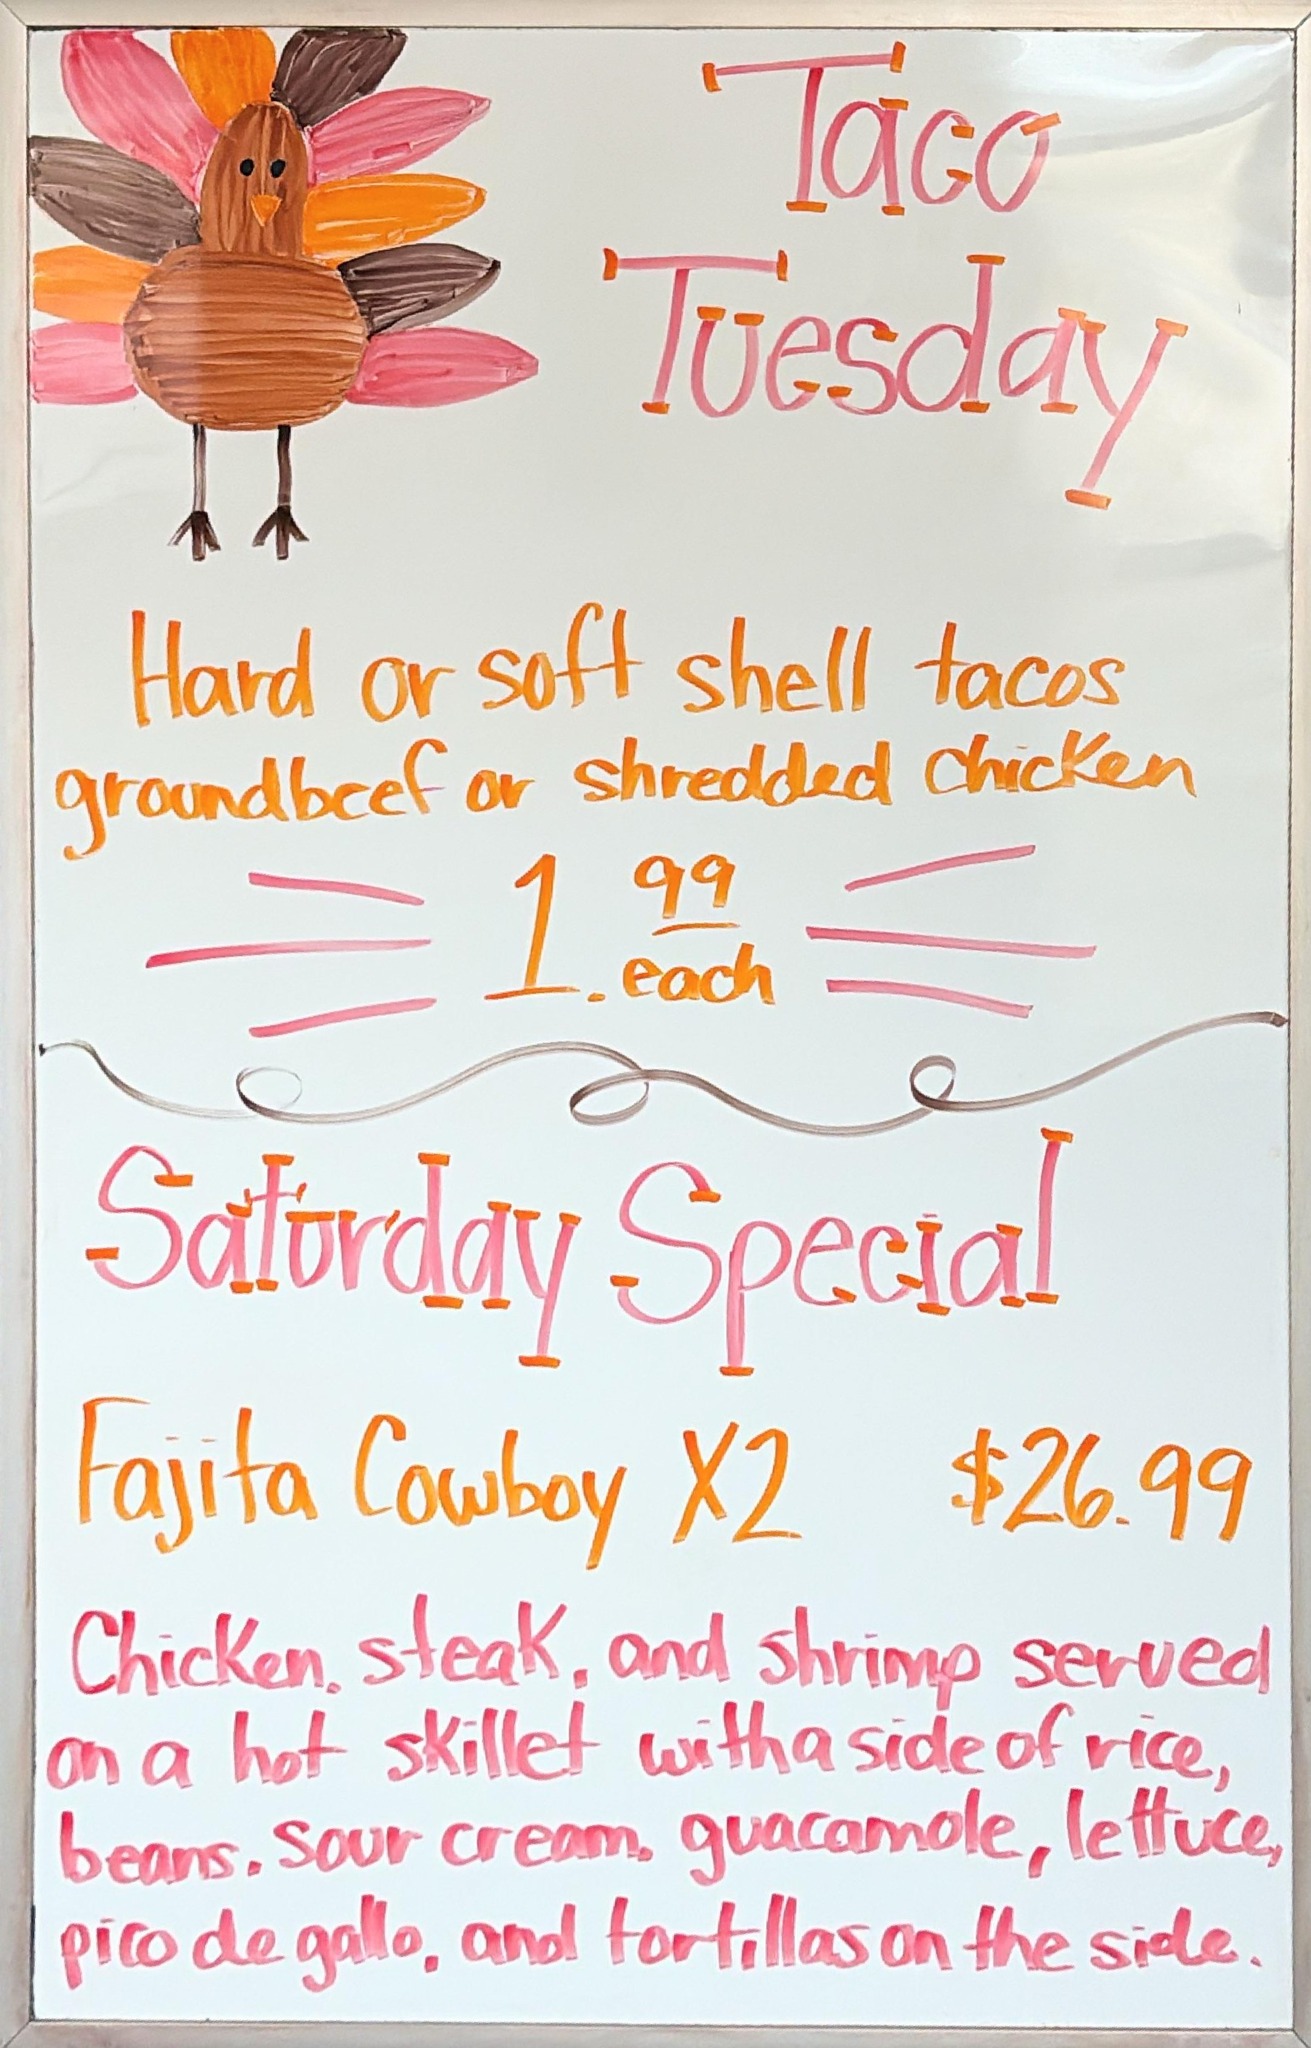 Taco
Tuesday
Hard or soft shell tacos
groundbeef or shredded chicken
1.99
each
Saturday Special
Fajita Cowboy X2 $26.99
Chicken. steak, and shrimp served
on a hot skillet with a side of rice,
beans. sour cream. guacamole, lettuce,
pico de gallo, and tortillas on the side.